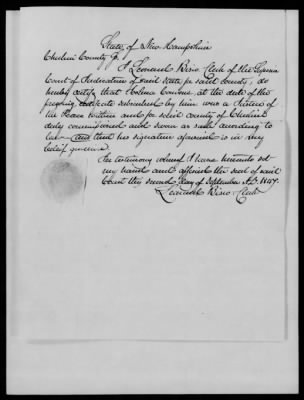 State of New Hampshire
Cheshire County Ss. I Leonard Bisco Clerk of the Superior
Court of Judicature of said State for said County, do
hereby certify that Conant at the date of the
foregoing certificate subscribed by him was a Justice of
the Peace within and for said County of Cheshire
duly commissioned and sworn as such according to
law and that his signature aforesaid is in my
belief genuine.
In testimony whereof I have hereunto set
my hand and affixed the seal of said
Court this second day of September A.D. 1847.
Leonard Bisco Clerk